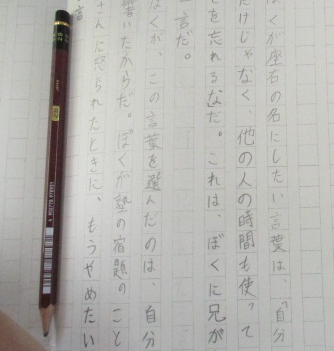 ぼくが座右の名にしたい言葉は、「自分
だけじゃなく、他の人の時間も使って
を忘れるなだ。これは、ぼくに兄が
一言だ。
ぼくが、この言葉を選んだのは、自分
響いたからだ。ぼくが塾の宿題のこと
さんに怒られたときに、もうやめたい